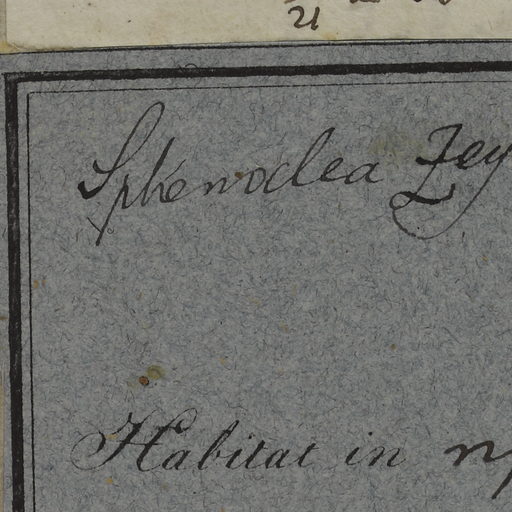 21
Sphenoclea Zey
Habitat in